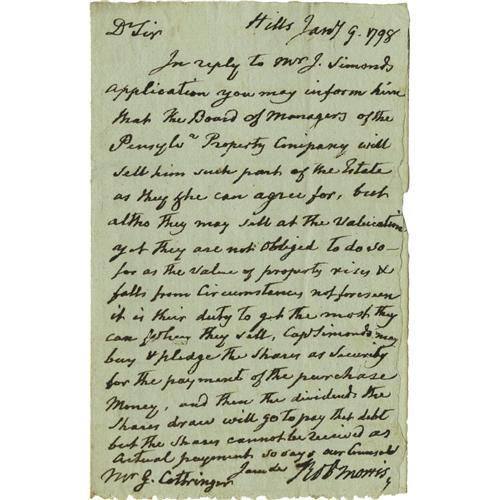 Hills Jany 9. 1798
Dr Sir
In reply to Mr J. Simonds
application you may inform him
that the Board of Managers of the
Pensylva Property Company will
sell him such part of the Estate
as they & he can agree for, but
altho they may sell at the Valuation
yet they are not Obliged to do so —
for as the Value of property rises &
falls from Circumstances not foreseen
it is their duty to get the most they
can when they sell, Capt Simonds may
buy & pledge the Shares as Security
for the payment of the purchase
Money, and then the dividends the
Shares draw will go to pay that debt
but the Shares cannot be received as
Actual payment so says our Counsel
I am &c
Mr G. Cottringer Robt Morris